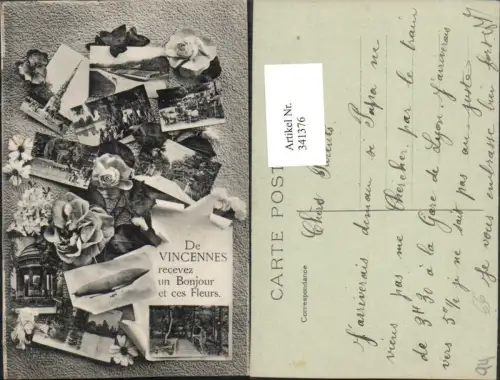 De
VINCENNES
recevez
un Bonjour
et ces Fleurs.
Artikel Nr.
341376
CARTE POST
Correspondance
Chers Parents
J'arriverais demain si Papa ne
viens pas me chercher par le train
de 3H 30 à la Gare de Lyon j'arriverais
vers 5H je ne sait pas au juste
Je vous embrasse bien fort